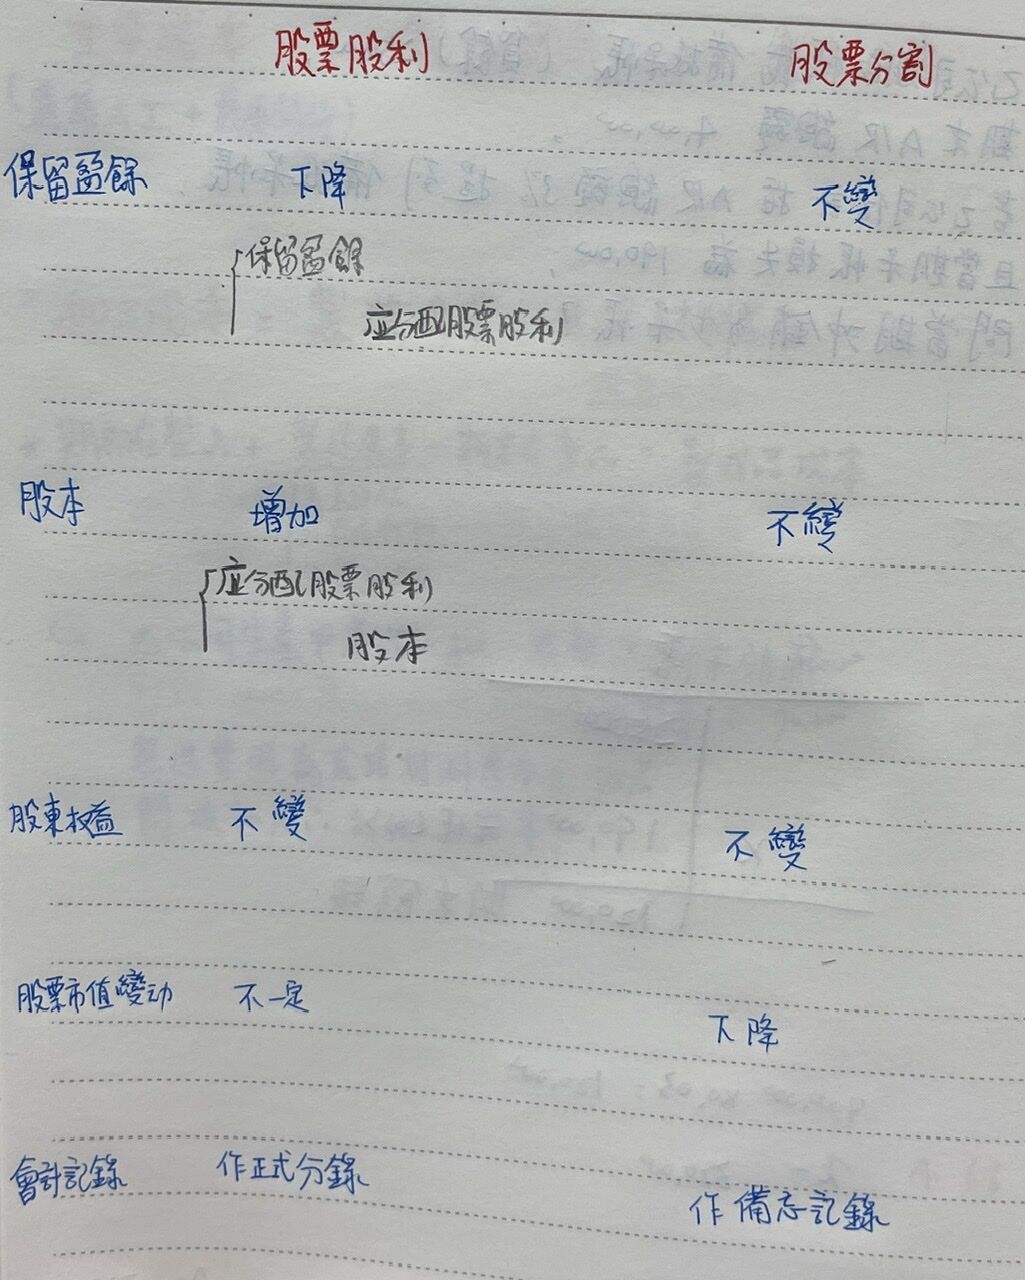 股票股利 股票分割
保留盈餘 下降 不變
保留盈餘
应分配股票股利
股本 增加 不變
应分配股票股利
股本
股東权益 不變 不變
股票市值變动 不一定 下降
會計記錄 作正式分錄 作備忘記錄